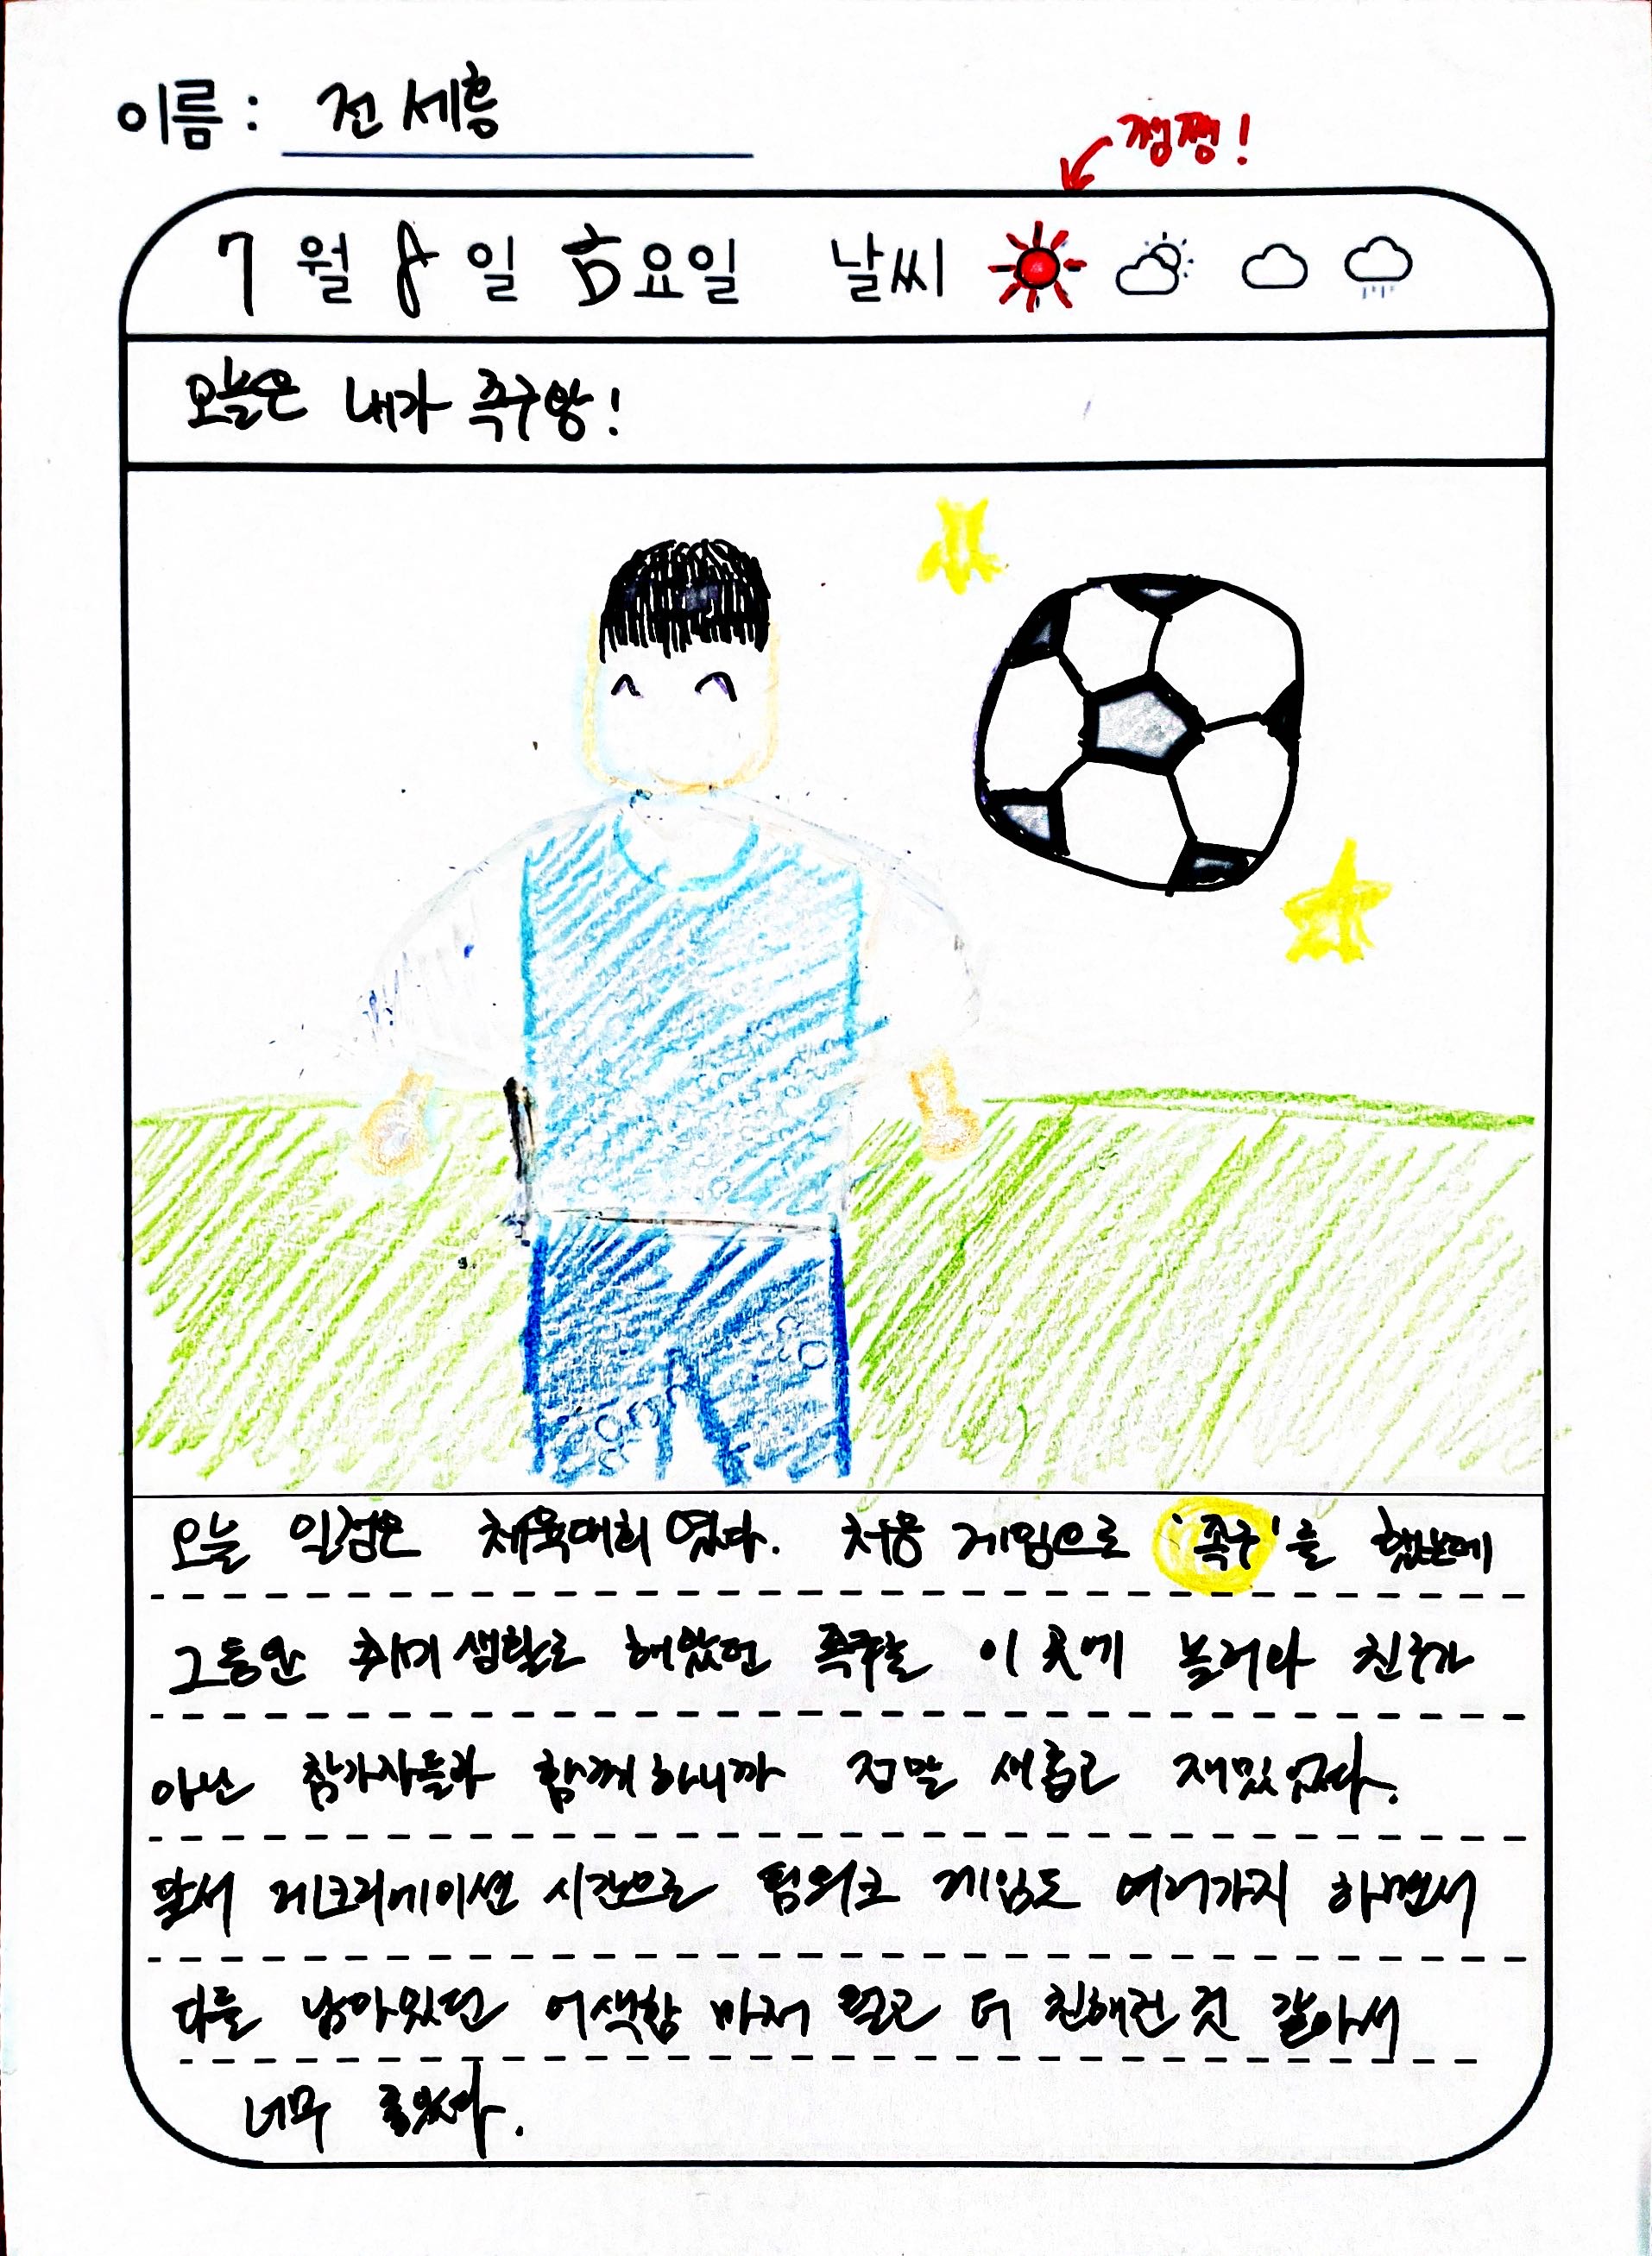 이름 : 전세흥
쨍쨍!
7월 8일 호요일 날씨
오늘은 내가 족구왕!
오늘 일정은 체육대회였다. 처음 게임으로 '족구'를 했는데
그동안 취미생활로 해왔던 족구를 이 곳에 불러와 친구가
아닌 참가자들과 함께하니까 정말 새롭고 재밌었다.
레크리에이션 시간으로 팀워크 게임도 여러가지 하면서
다들 남아있던 어색함 마저 풀고 더 친해진 것 같아서
너무 좋았다.